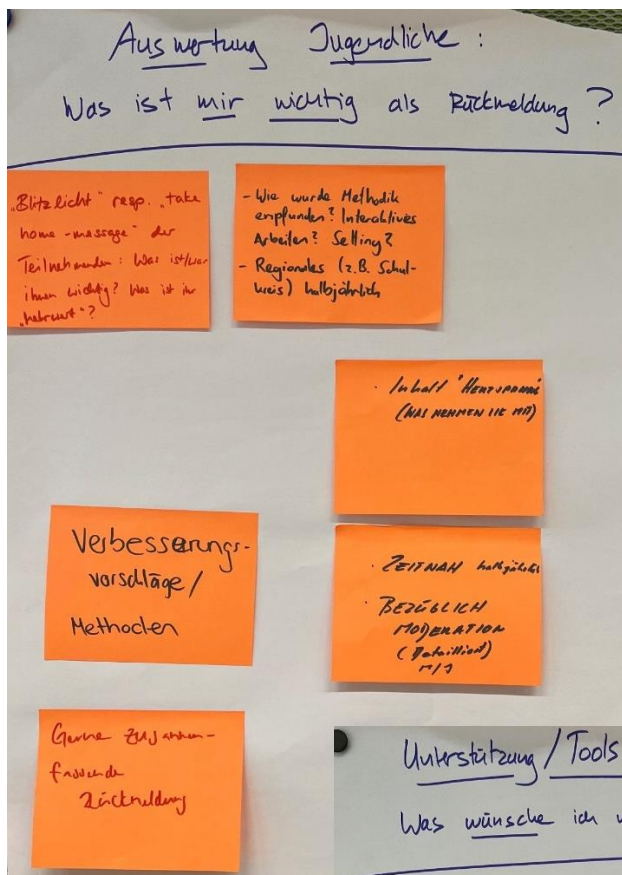 Auswertung Jugendliche :
Was ist mir wichtig als Rückmeldung ?
„Blitzlicht" resp. „take
home-massage" der
Teilnehmenden : Was ist/war
ihnen wichtig? Was ist ihr
„Mehrwert"?
- Wie wurde Methodik
empfunden? Interaktives
Arbeiten? Setting?
- Regionales (z.B. Schul-
kreis) halbjährlich
· Inhalt
(WAS NEHMEN SIE MIT)
Verbesserungs-
vorschläge /
Methoden
· ZEITNAH halbjährlich
· BEZÜGLICH
MODERATION
(Detailliert)
Gerne zusammen-
fassende
Rückmeldung
Unterstützung / Tools
Was wünsche ich